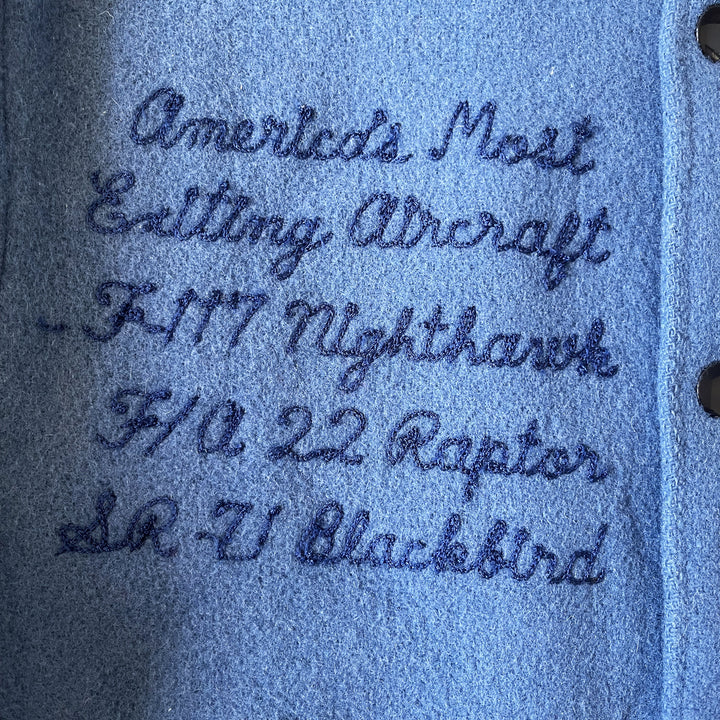 America's Most
Exiting Aircraft
- F-117 Nighthawk
F/A 22 Raptor
SR-71 Blackbird